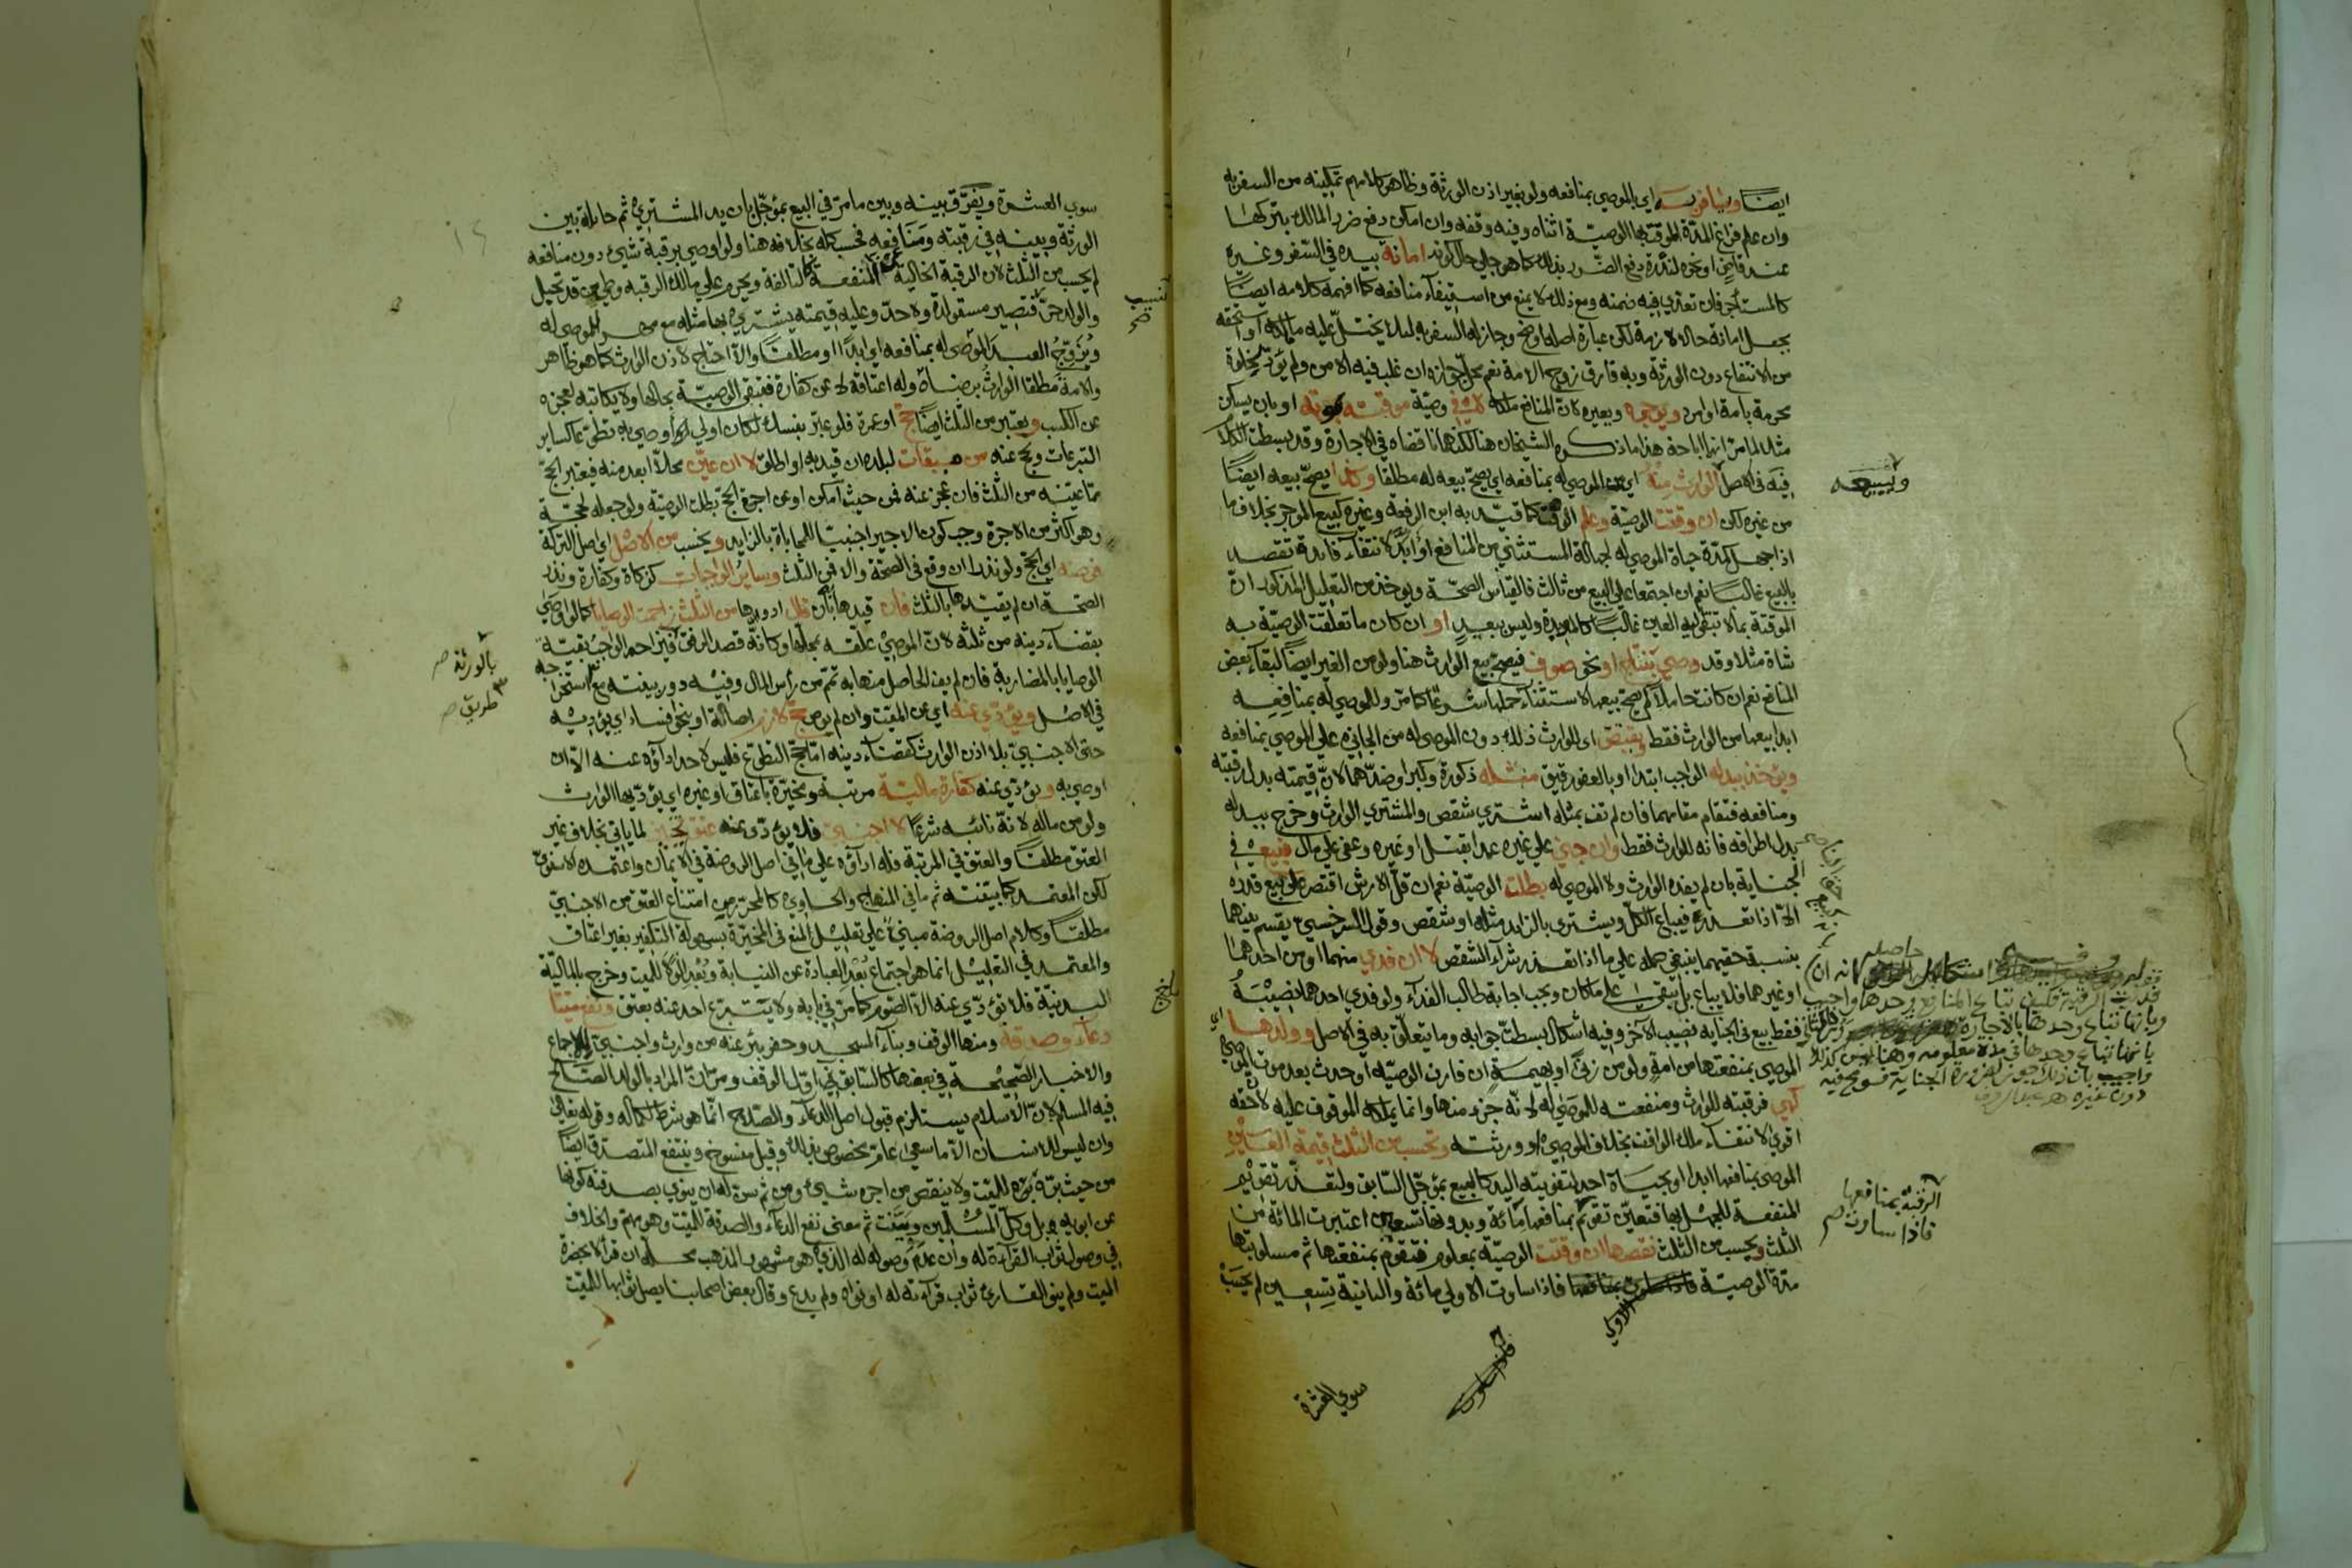 ايضًا ويسافر به اي بالموصي بمنافعه ولو بغير اذن الورثة وظاهر كلامهم تمكينه من السفر به
وان علم فراغ المدة الموقت بها الوصية اثناه وفيه وقفه وان امكن دفع ضرر المالك بتركها
عند قاضٍ او نحوه لندرة دفع الضرر بذلك كما هو جلي حال كونه امانة بيده في السفر وغيره
كالمستأجر فان تعدى فيه ضمنه ومع ذلك لا يمنع من استيفآء منافعه كما افهمه كلامه ايضًا
بجعل امانة حالا لازمة لكن عبارة اصله اوضح وجاز له السفر به لئلا يختل عليه ما ملكه او استحقه
من الانتفاع دون الورثة وبه فارق زوج الامة نعم محل جوازه ان غلب فيه الامن ولم يؤد لخلوة
محرمة بامة او امرد ويوجره ويعيره لان المنافع ملكه لا في وصية موقتة او بان يسكن
مثلا لما مر انها اباحة هذا ما ذكره الشيخان هنا لكنهما ناقضاه في الاجارة وقد بسطت الكلام
فيه في الاصل الوارث منه اي من الموصي له بمنافعه اي يصح بيعه له مطلقا وكذا يصح بيعه ايضًا
ويبيعه
من غيره لكن ان وقتت الوصية وعلم الوقت كما قيد به ابن الرفعة وغيره كبيع الموجر بخلاف ما
اذا جهل كمدة حياة الموصي له لجهالة المستثنى من المنافع او ابد لانتفآء فايدة تقصد
بالبيع غالبا نعم ان اجتمعا علي البيع من ثالث فالقياس الصحة ويوخذ من التعليل المذكور ان
الموقتة بما لا تبقى اليه العين غالبًا كالموبدة وليس ببعيد او ان كان ما تعلقت الوصية به
شاة مثلا وقد وصي بنتاج او نحو صوف فيصح بيع الوارث هنا ولو من الغير ايضًا لبقآء بعض
المنافع نعم ان كانت حاملا لم يصح بيعها لاستثنآء حملها شرعًا كما مر وللموصي له بمنافعه
ابدا بيعها من الوارث فقط ويقتص اي الوارث ذلك دون الموصي له من الجاني علي الموصي بمنافعه
ويؤخذ ببدله الواجب ابتدا او بالعفو رقيق مثله ذكورة وكبرا وضدهما لان قيمته بدل رقبته
ومنافعه فتقام مقامهما فان لم تف بمثله اشتري شقص والمشتري الوارث وخرج ببدله
بدل اطرافه فانه للوارث فقط وان جني علي غيره عمدا بقتل او غيره وعفي علي مال فبيع في
الجناية بان لم يفده الوارث ولا الموصي له بطلت الوصية نعم ان قل الارش اقتصر علي بيع قدره
الا اذا تعذر فيباع الكل ويشترى بالزايد مثله او شقص وقول السرخسي يقسم بينهما
بنسبة حقيهما ينبغي حمله علي ما اذا تعذر شرآء الشقص لا ان فدي منهما او من احدهما
او غيرهما فلا يباع بل يبقى علي ما كان ويجب اجابة طالب الفدآء ولو فدي احدهما نصيبه
فقط بيع في الجناية نصيب الاخر وفيه اشكال بسطت جوابه وما يتعلق به في الاصل وولدها اي
الموصي بمنفعتها من امة ولو من زنًى او بهيمة ان قارن الوصية او حدث بعد موت الموصي
كهي فرقبته للوارث ومنفعته للموصي له لانه جزء منها وانما يملكه الموقوف عليه لان حقه
اقوي لانتفآء ملك الواقف بخلاف الموصي او ورثته وتحسب من الثلث قيمة العين
الموصي بمنافعها ابدا او بحياة احد لتفويته اليد كالبيع بمؤجل السابق ولتعذر تقويم
المنفعة للجهل بها فتعين تقويم بمنافعها مائة وبدونها تسعين اعتبرت المائة من
الثلث ويحسب من الثلث نقصها ان وقتت الوصية بمعلوم فتقوم بمنفعتها ثم مسلوبتها
مدة الوصية فاذا ساوت الاولي مائة والثانية تسعين لم يحسب
الرقبة بمنافعها
فاذا ساوت
سوي العشرة
سوي العشرة ويفرق بينه وبين ما مر في البيع بمؤجل بان يد المشتري ثم حايلة بين
الورثة وبينه في رقبته ومنافعه فحسب كله بخلافه هنا ولو اوصي برقبة شيء دون منافعه
لم يحسب من الثلث لان الرقبة الخالية عن المنفعة كالتالفة ويحرم علي مالك الرقبة وطي من قد تحبل
والولد حر فتصير مستولدة ولا حد وعليه قيمته يشتري بها مثله مع مهر للموصي له
ويزوج العبد الموصي له بمنافعه اي ابدًا او مطلقًا والا احتاج لاذن الوارث كما هو ظاهر
والامة مطلقا الوارث برضاه وله اعتاقه لا عن كفارة فتبقى الوصية بحالها ولا يكاتبه لعجزه
عن الكسب ويعتبر من الثلث ايضًا حج او عمرة فلو عبر بنسك لكان اولي اوصي به تطوع كساير
التبرعات ويحج عنه من ميقات لبلده ان قيد به او اطلق لا ان عين محلا ابعد منه فيعتبر الحج
مما عينه من الثلث فان عجز عنه فمن حيث امكن او عن اجرة الحج بطلت الوصية ولو جعله لحجة
وهو اكثر من الاجرة وجب كون الاجير اجنبيا للمحاباة بالزايد ويحسب من الاصل اي اصل التركة
فرضه اي الحج ولو نذرا ان وقع في الصحة والا فمن الثلث وساير الواجبات كزكاة وكفارة ونذر
الصحة ان لم يقيدها بالثلث فان قيدها بان قال ادوها من الثلث زاحمت الوصايا كما لو اوصي
بقضآء دينه من ثلثه لان الموصي علقه بمحلها وكانه قصد الرفق فيزاحم الواجب بقية
بالورثة صح
الوصايا بالمضاربة فان لم يف الحاصل منها به تمم من رأس المال وفيه دور بينته مع استخراجه
طريق صح
في الاصل ويؤدي عنه اي عن الميت وان لم يوص حج لازم اصالة او بنحو افساد اي يؤديه
حتى الاجنبي بلا اذن الوارث كقضآء دينه اما حج التطوع فليس لاحد اداؤه عنه الا ان
اوصي به ويؤدي عنه كفارة مالية مرتبة ومخيرة باعتاق او غيره اي يؤديها الوارث
ولو من ماله لانه نائبه شرعا لا اجنبي فلا يؤدي عنه عتق تخيير لما ياتي بخلاف غير
العتق مطلقًا والعتق في المرتبة فله اداؤه علي ما في اصل الروضة في الايمان واعتمده الاسنوي
لكن المعتمد كما بينته ثم ما في المنهاج والحاوي كالمحرر من امتناع العتق من الاجنبي
مطلقًا وكلام اصل الروضة مبني علي تعليل المنع في المخيرة بسهولة التكفير بغير اعتاق
والمعتمد في التعليل انما هو اجتماع بُعْد العبادة عن النيابة وبُعْد الولآء للميت وخرج بالمالية
البدنية فلا يؤدي عنه الا الصوم كما مر في بابه ولا يتبرع احد عنه بعتق ونفع ميتا
دعاء وصدقة ومنها الوقف وبنآء المسجد وحفر بئر عنه من وارث واجنبي للاجماع
والاخبار الصحيحة في بعضها كالسابق في اول الوقف ومر ان المراد بالولد الصالح
فيه المسلم لان الاسلام يستلزم قبول اصل الدعآء والصلاح انما هو شرط لكماله وقوله تعالي
وان ليس للانسان الا ما سعي عام مخصوص بذلك وقيل منسوخ وينتفع المتصدق ايضًا
من حيث بره بؤه للميت ولا ينقص من اجره شيء ومن ثم سن له ان ينوي بصدقته كونها
عن ابويه بل وكل المسلمين وبينت ثم معنى نفع الدعآء والصدقة للميت وهو مهم والخلاف
في وصول ثواب القراءة له وان عدم وصوله له الذي هو مشهور المذهب محله ان قرأ لا بحضرة
الميت ولم ينو القارئ ثواب قرآءته له او نواه ولم يدع وقال بعض اصحابنا يصل ثوابها للميت